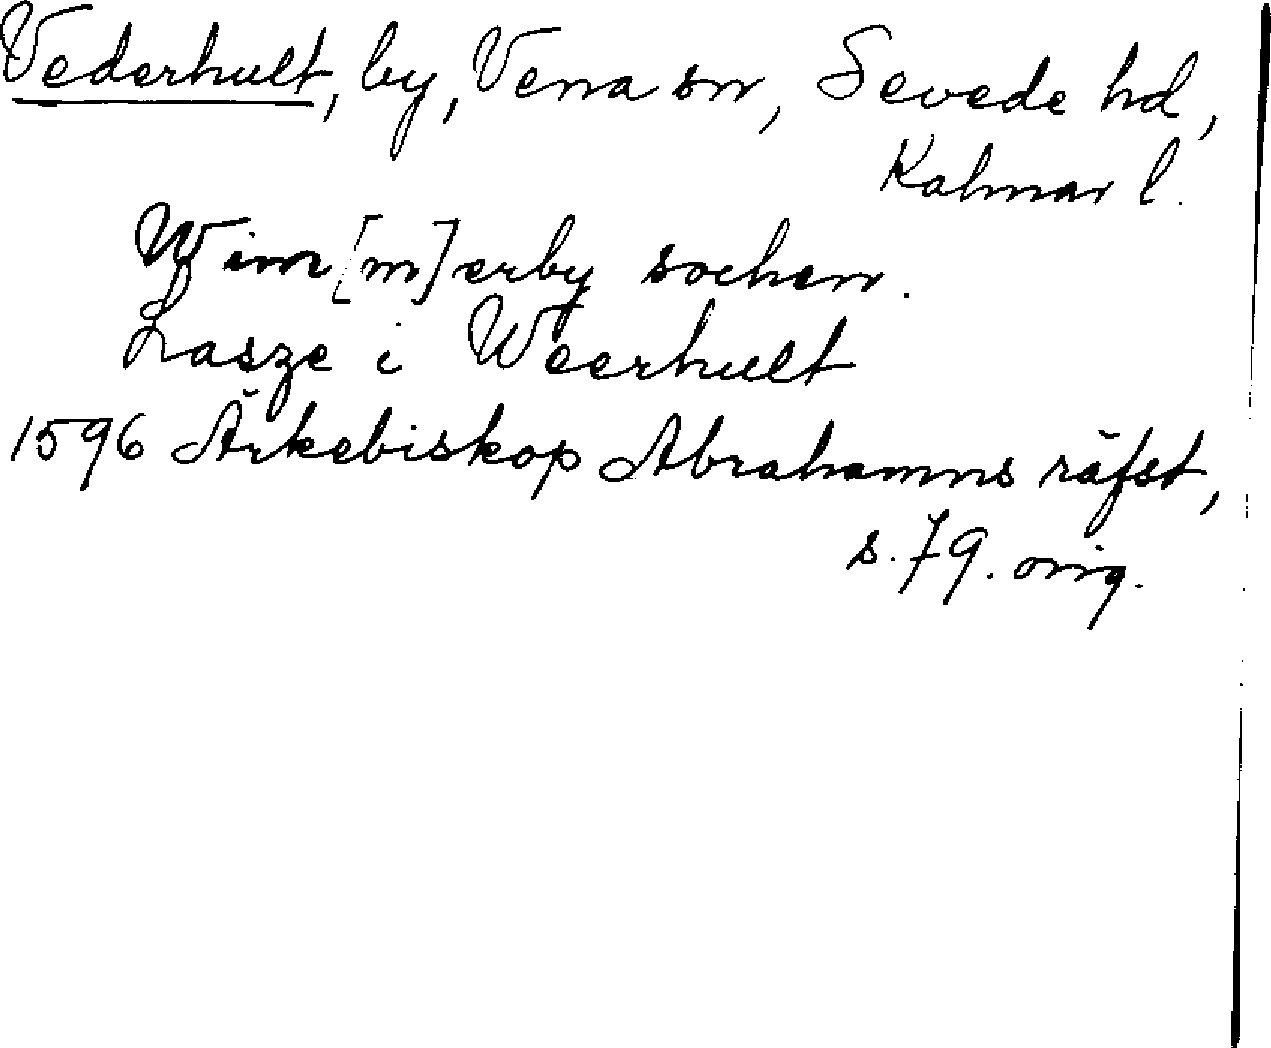 Vederhult, by, Vena sn, Sevede hd,
Kalmar l.
Wim[m]erby sochen.
Lasze i Weerhult
1596 Ärkebiskop Abrahamns räfst,
s. 79. orig.